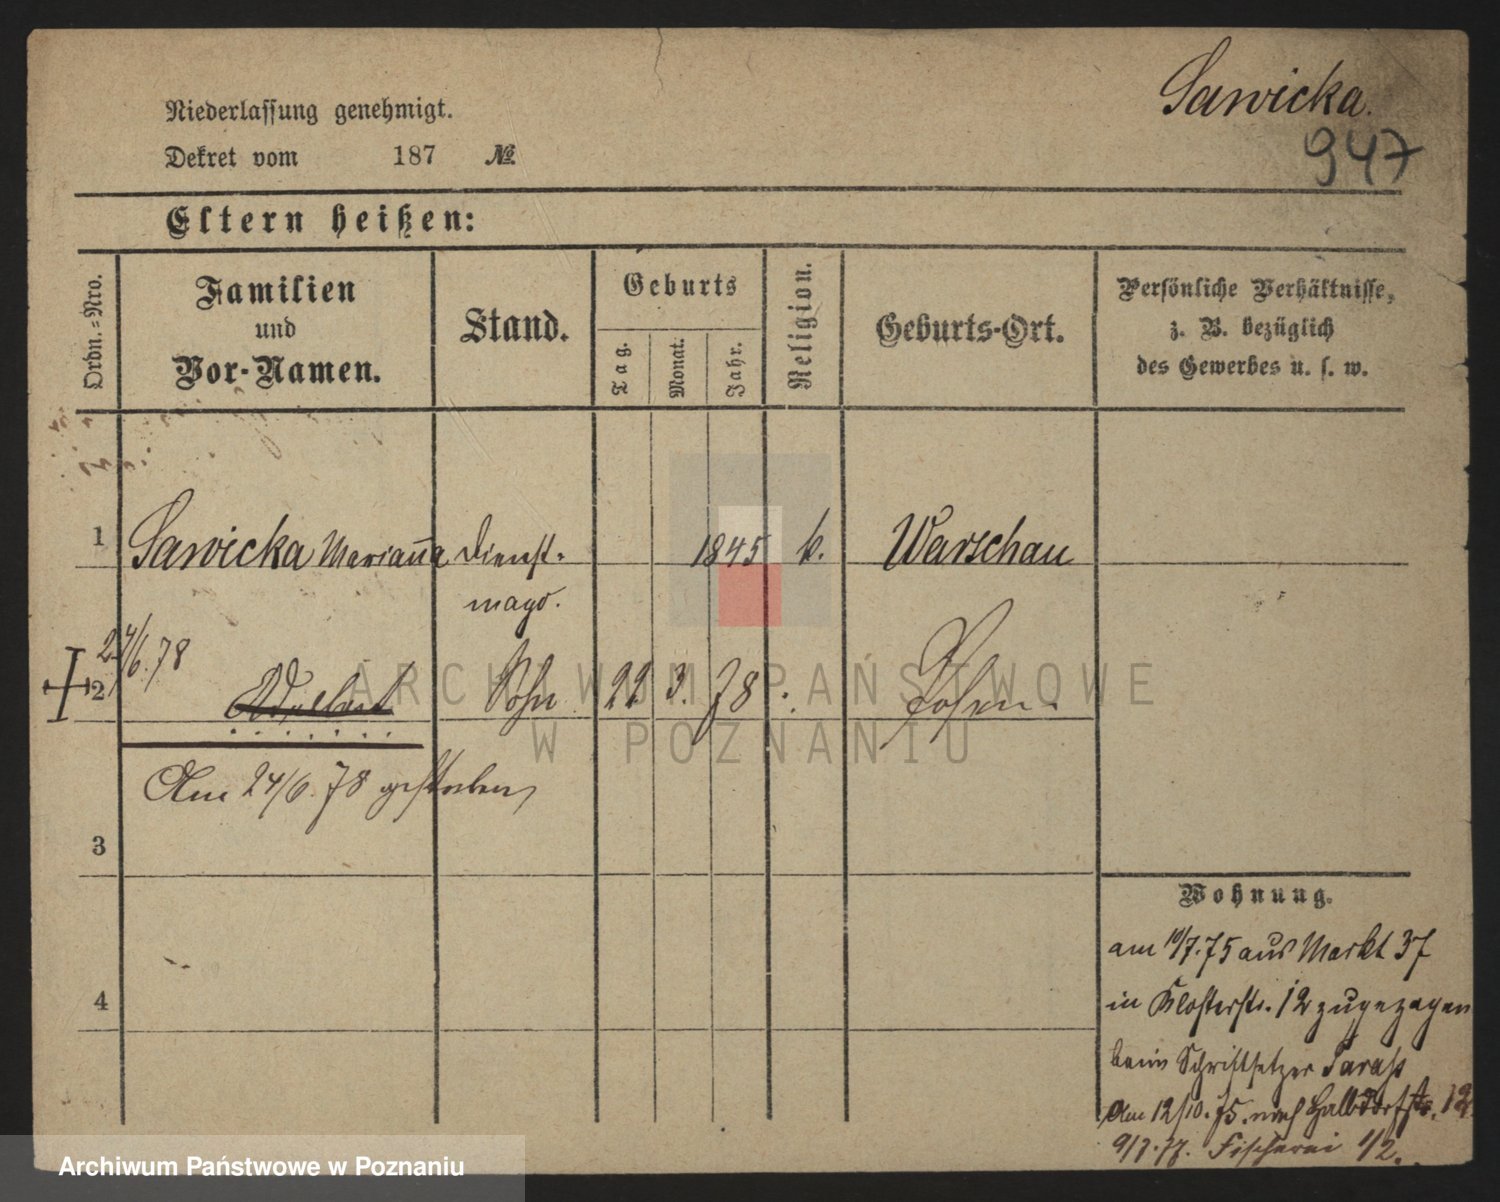 Sawicka.
947
Niederlassung genehmigt.
Dekret vom 187 №
Eltern heißen:
Ordn.=Nro.
Familien und Vor-Namen.
Stand.
Geburts
Tag.
Monat.
Jahr.
Religion.
Geburts-Ort.
Persönliche Verhältnisse,
z. B. bezüglich
des Gewerbes u. s. w.
1 Sawicka Marianna Dienst- 1845 k. Warschau
magd.
24/6.78
2 Adalbert Sohn 22 3. 78 Posen.
Am 24/6.78 gestorben
3
4
Wohnung.
am 10/7.75 aus Markt 37
in Klosterstr. 12 zugezogen
beim Schriftsetzer
Am 12/10.75. nach Halbdorfstr. 12
9/7.77. Fischerei 1/2.
ARCHIWUM PAŃSTWOWE
W POZNANIU
Archiwum Państwowe w Poznaniu